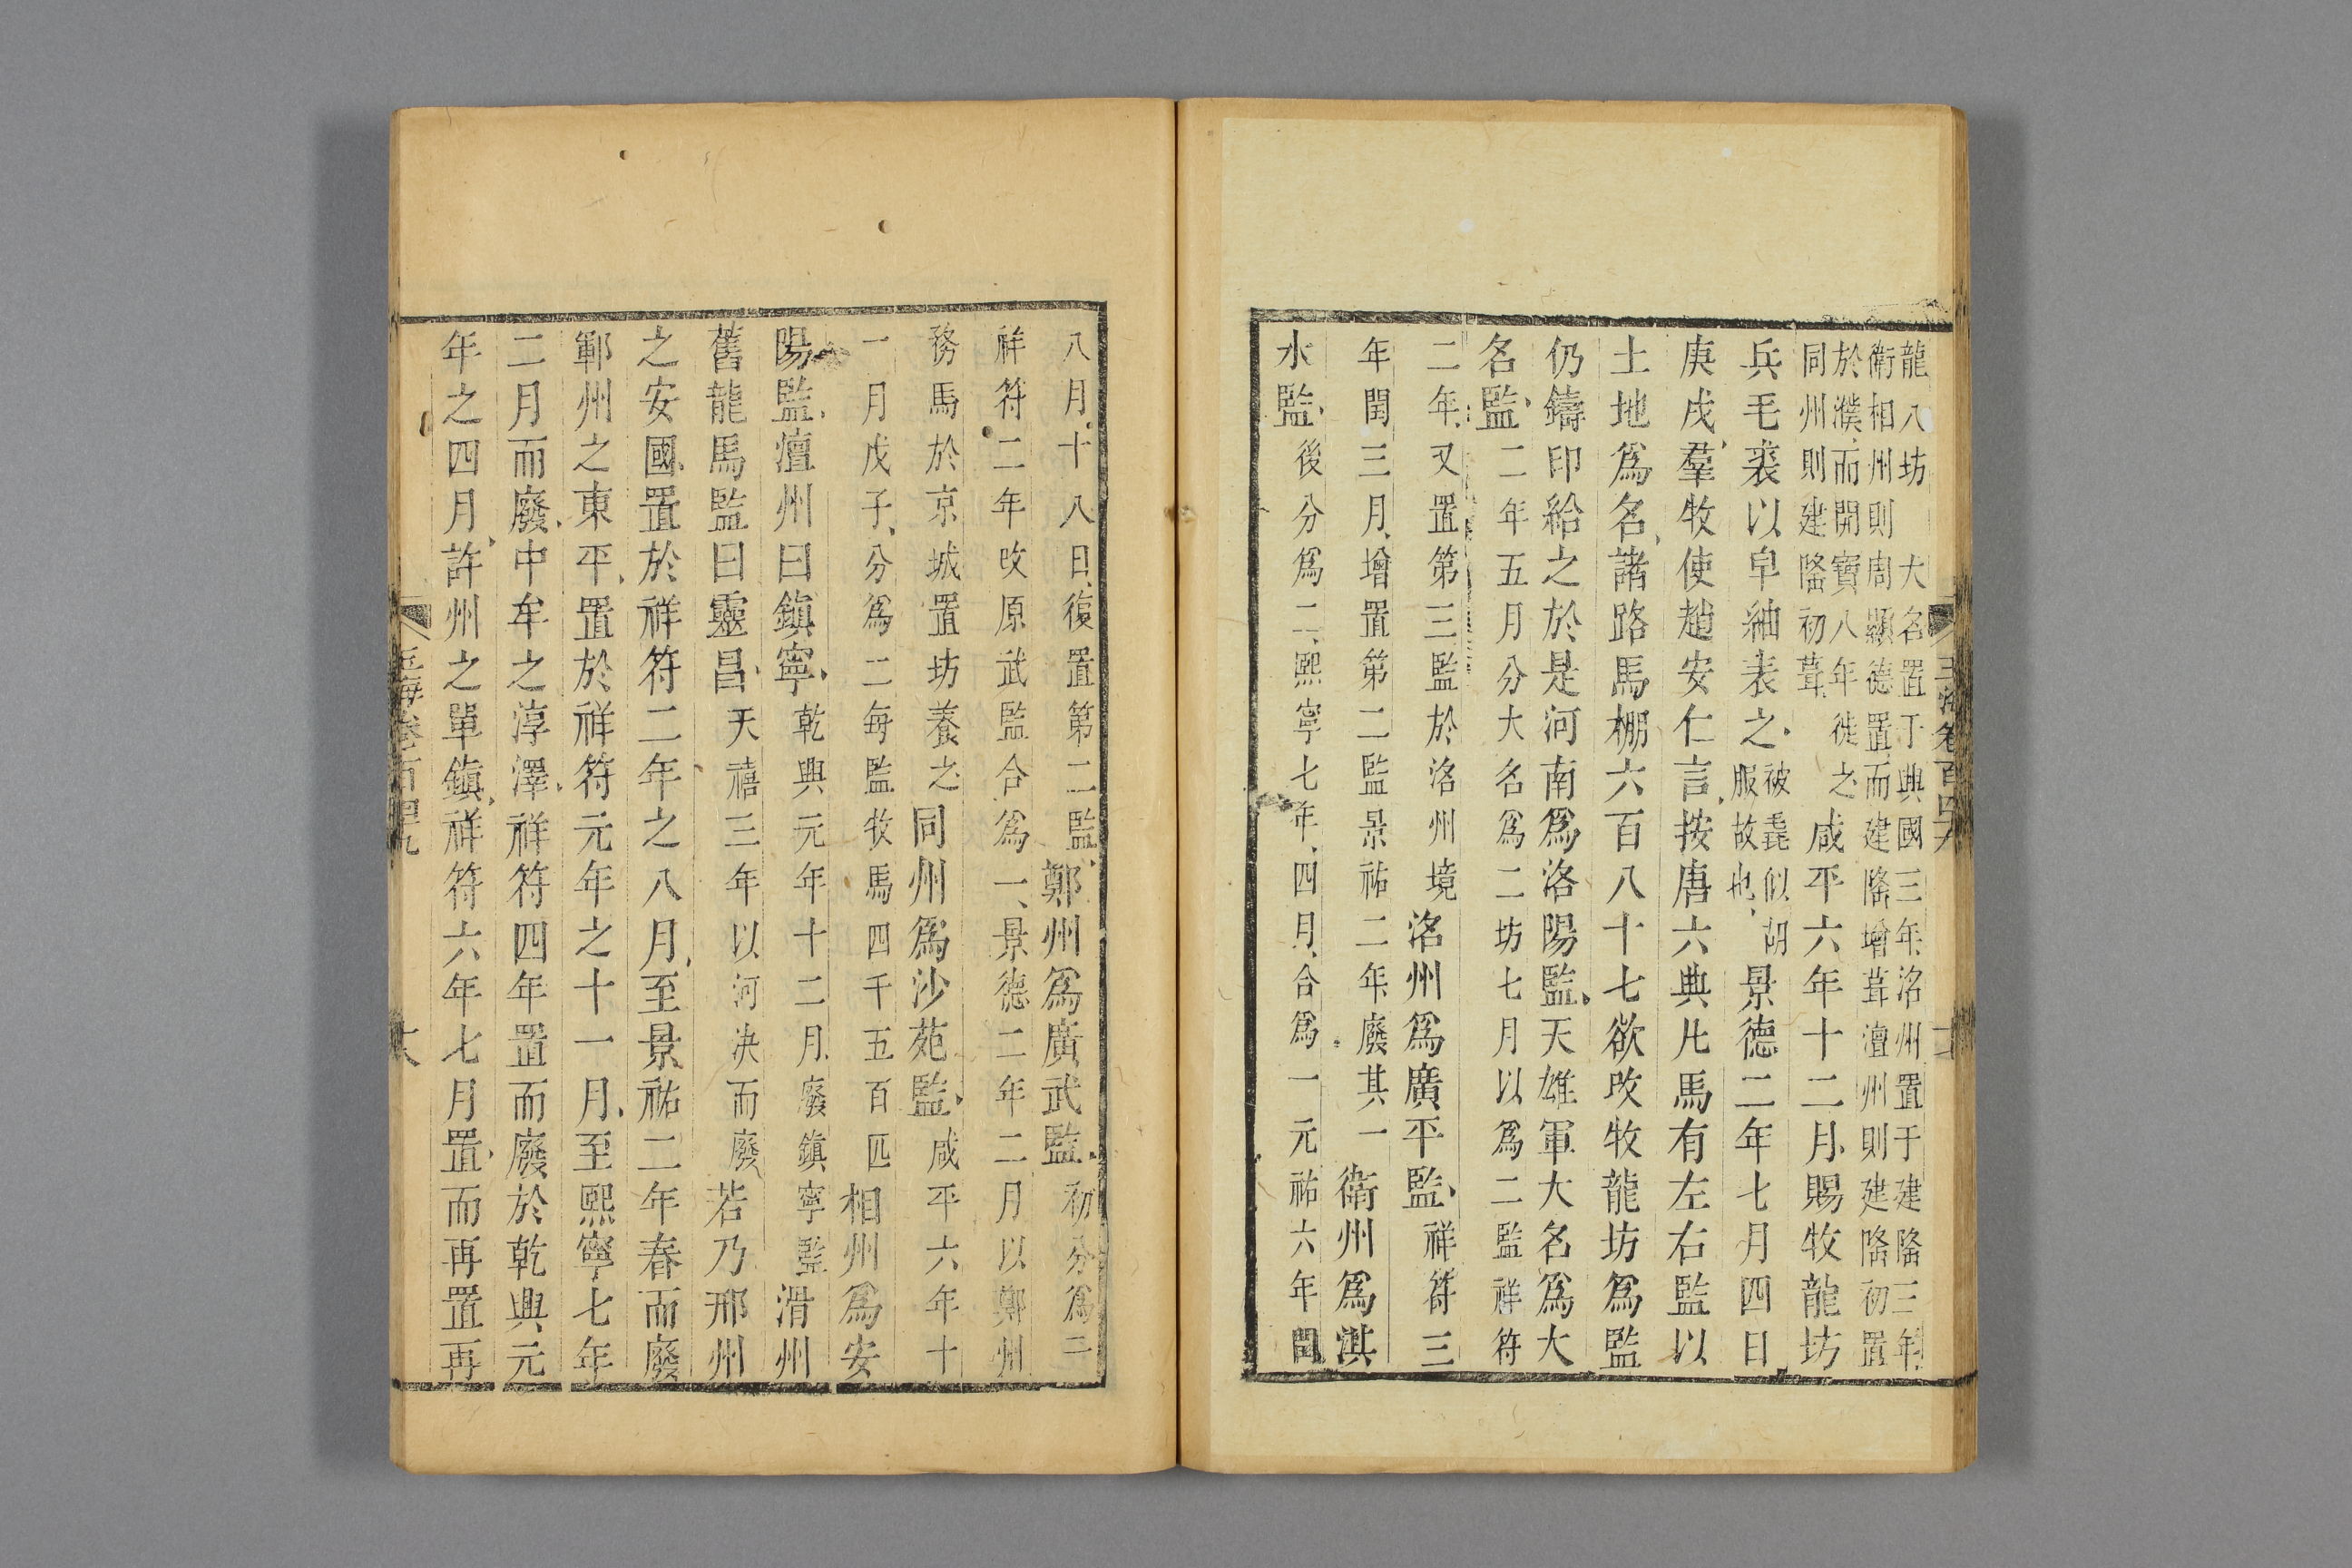 龍八坊 大名置于興國三年洺州置于建隆三年
衛相州則周顯德置而建隆增葺澶州則建隆初置
於濮而開寶八年徙之
同州則建隆初葺
咸平六年十二月賜牧龍坊
兵毛裘以皁紬表之
被毳似胡
服故也
景德二年七月四日
庚戌羣牧使趙安仁言按唐六典凡馬有左右監以
土地爲名諸路馬棚六百八十七欲改牧龍坊爲監
仍鑄印給之於是河南爲洛陽監天雄軍大名爲大
名監二年五月分大名爲二坊七月以爲二監祥符
二年又置第三監於洺州境洺州爲廣平監祥符三
年閏三月增置第二監景祐二年廢其一衛州爲淇
水監後分爲二熙寧七年四月合爲一元祐六年閏
八月十八日復置第二監鄭州爲廣武監初分爲二
祥符二年改原武監合爲一景德二年二月以鄭州
務馬於京城置坊養之同州爲沙苑監咸平六年十
一月戊子分爲二每監牧馬四千五百匹相州爲安
陽監澶州曰鎮寧乾興元年十二月廢鎮寧監滑州
舊龍馬監曰靈昌天禧三年以河决而廢若乃邢州
之安國置於祥符二年之八月至景祐二年春而廢
鄆州之東平置於祥符元年之十一月至熙寧七年
二月而廢中牟之淳澤祥符四年置而廢於乾興元
年之四月許州之單鎮祥符六年七月置而再置再